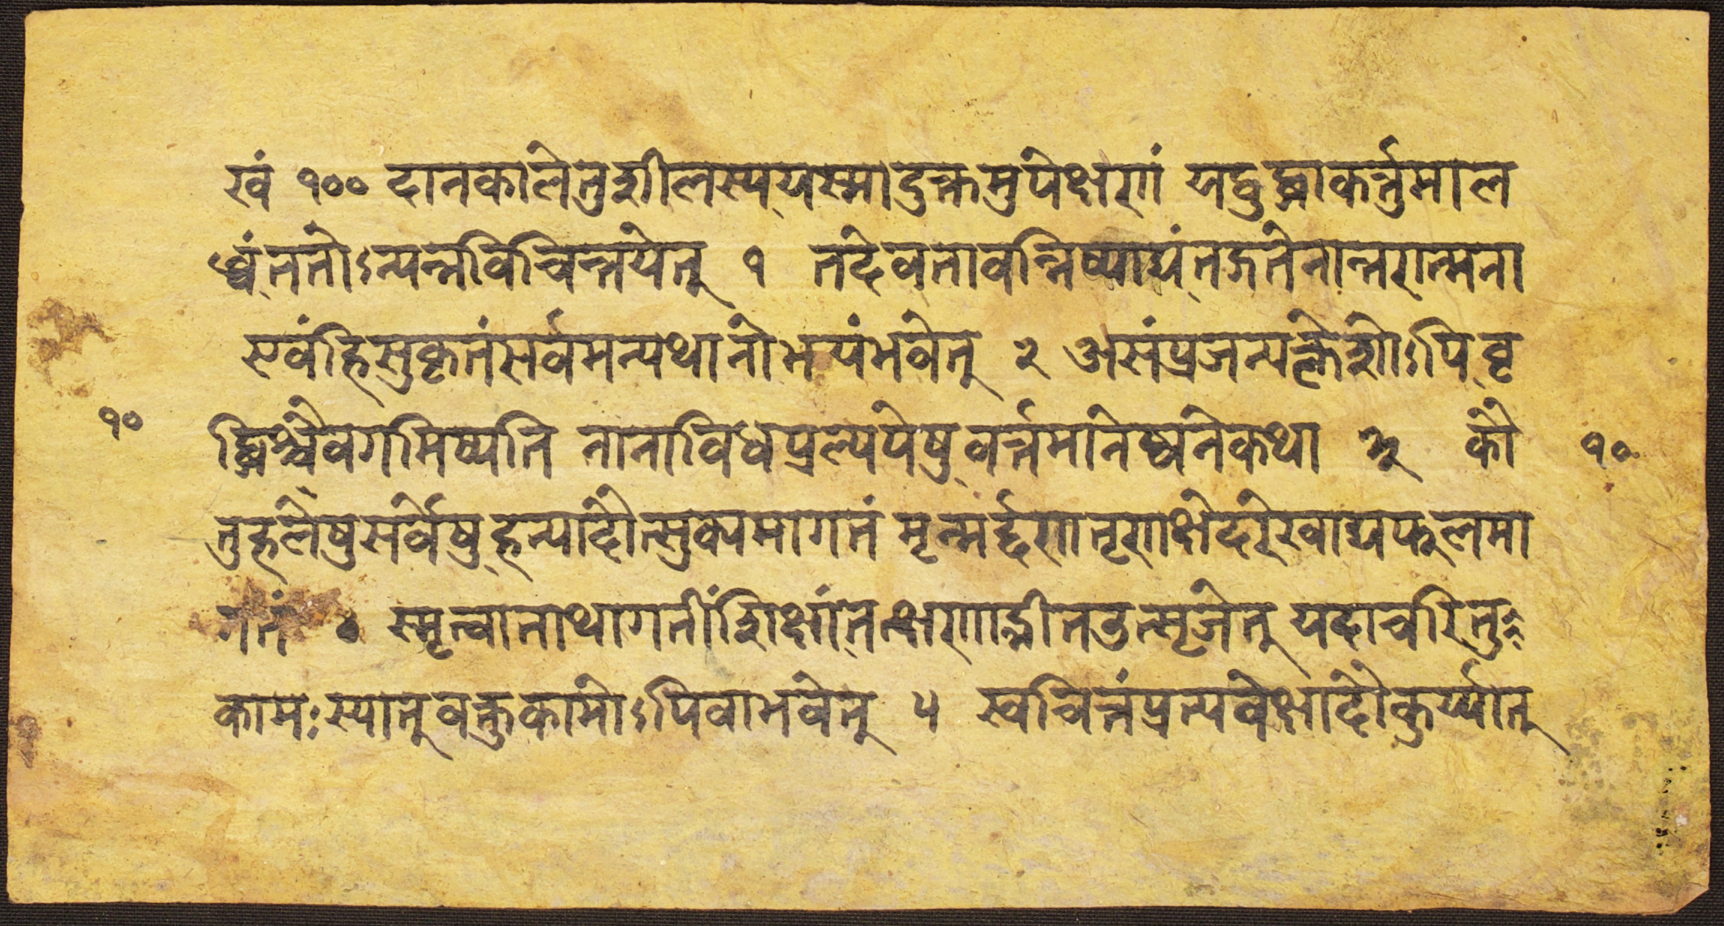 खं १०० दानकालेतुशीलस्ययस्मादुक्तमुपेक्षणं यद्बुद्ध्वाकर्त्तुमाल
ब्धंततोऽन्यन्नविचिन्तयेत् १ तदेवतावन्निष्पाद्यंतद्गतेनान्तरात्मना
एवंहिसुकृतंसर्वमन्यथानोभयंभवेत् २ असंप्रजन्यक्लेशोऽपिवृ
१० द्धिश्चैवगमिष्यति नानाविधप्रल्यपेषुवर्त्तमानेष्वनेकथा ३ कौ १०
तुहलेषुसर्वेषुहन्यादौत्सुक्यमागतं मृन्मर्द्दणतृणक्षेदरेखाद्यफलमा
गतं ४ स्मृत्वाताथागतींशिक्षांतत्क्षणाद्भीतउत्सृजेत् यदाचरितु
कामःस्यात्वक्तुकामोऽपिवाभवेत् ५ स्वचित्तंप्रत्यवेक्षादौकुर्य्यात्